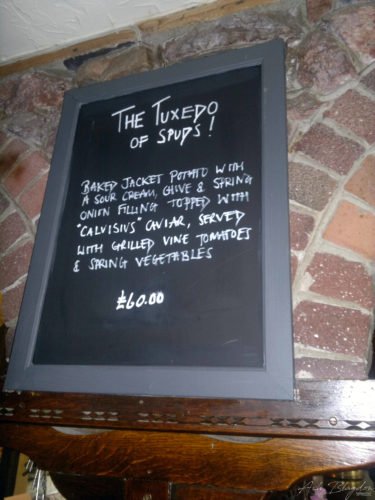 THE TUXEDO
OF SPUDS!
BAKED JACKET POTATO WITH
A SOUR CREAM, CHIVE & SPRING
ONION FILLING TOPPED WITH
"CALVISIUS" CAVIAR, SERVED
WITH GRILLED VINE TOMATOES
& SPRING VEGETABLES
£60.00